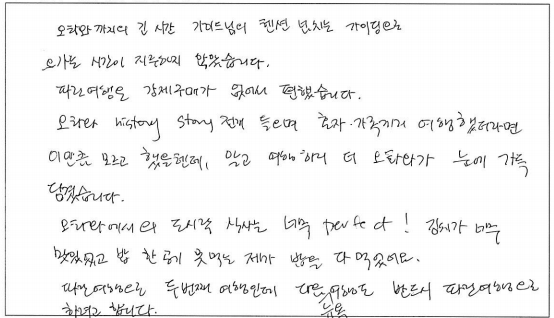 오타와까지의 긴 시간 가이드님의 텐션 넘치는 가이딩으로
오가는 시간이 지루하지 않았습니다.
파란여행은 강제구매가 없어서 편했습니다.
오타와 history story 전개 들으며 혼자·가족끼리 여행했더라면
이만큼 모르고 했을텐데, 알고 여행하니 더 오타와가 눈에 가득
담겼습니다.
오타와에서의 도시락 식사는 너무 perfect! 김치가 너무
맛있었고 밥 한공기 못먹는 제가 밥을 다 먹었어요.
파란여행으로 두번째 여행인데 다음여행도 반드시 파란여행으로
하려고 합니다.
뉴욕